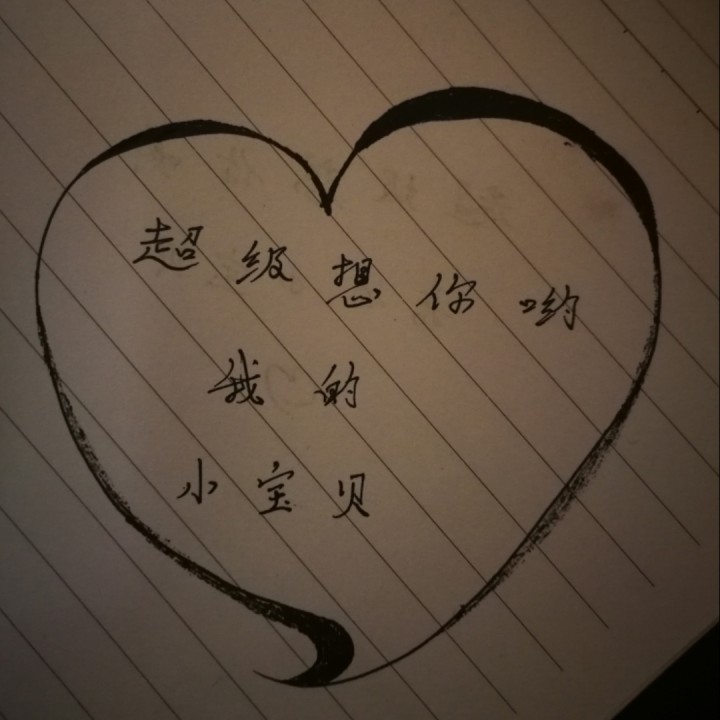 超级想你哟
我的
小宝贝